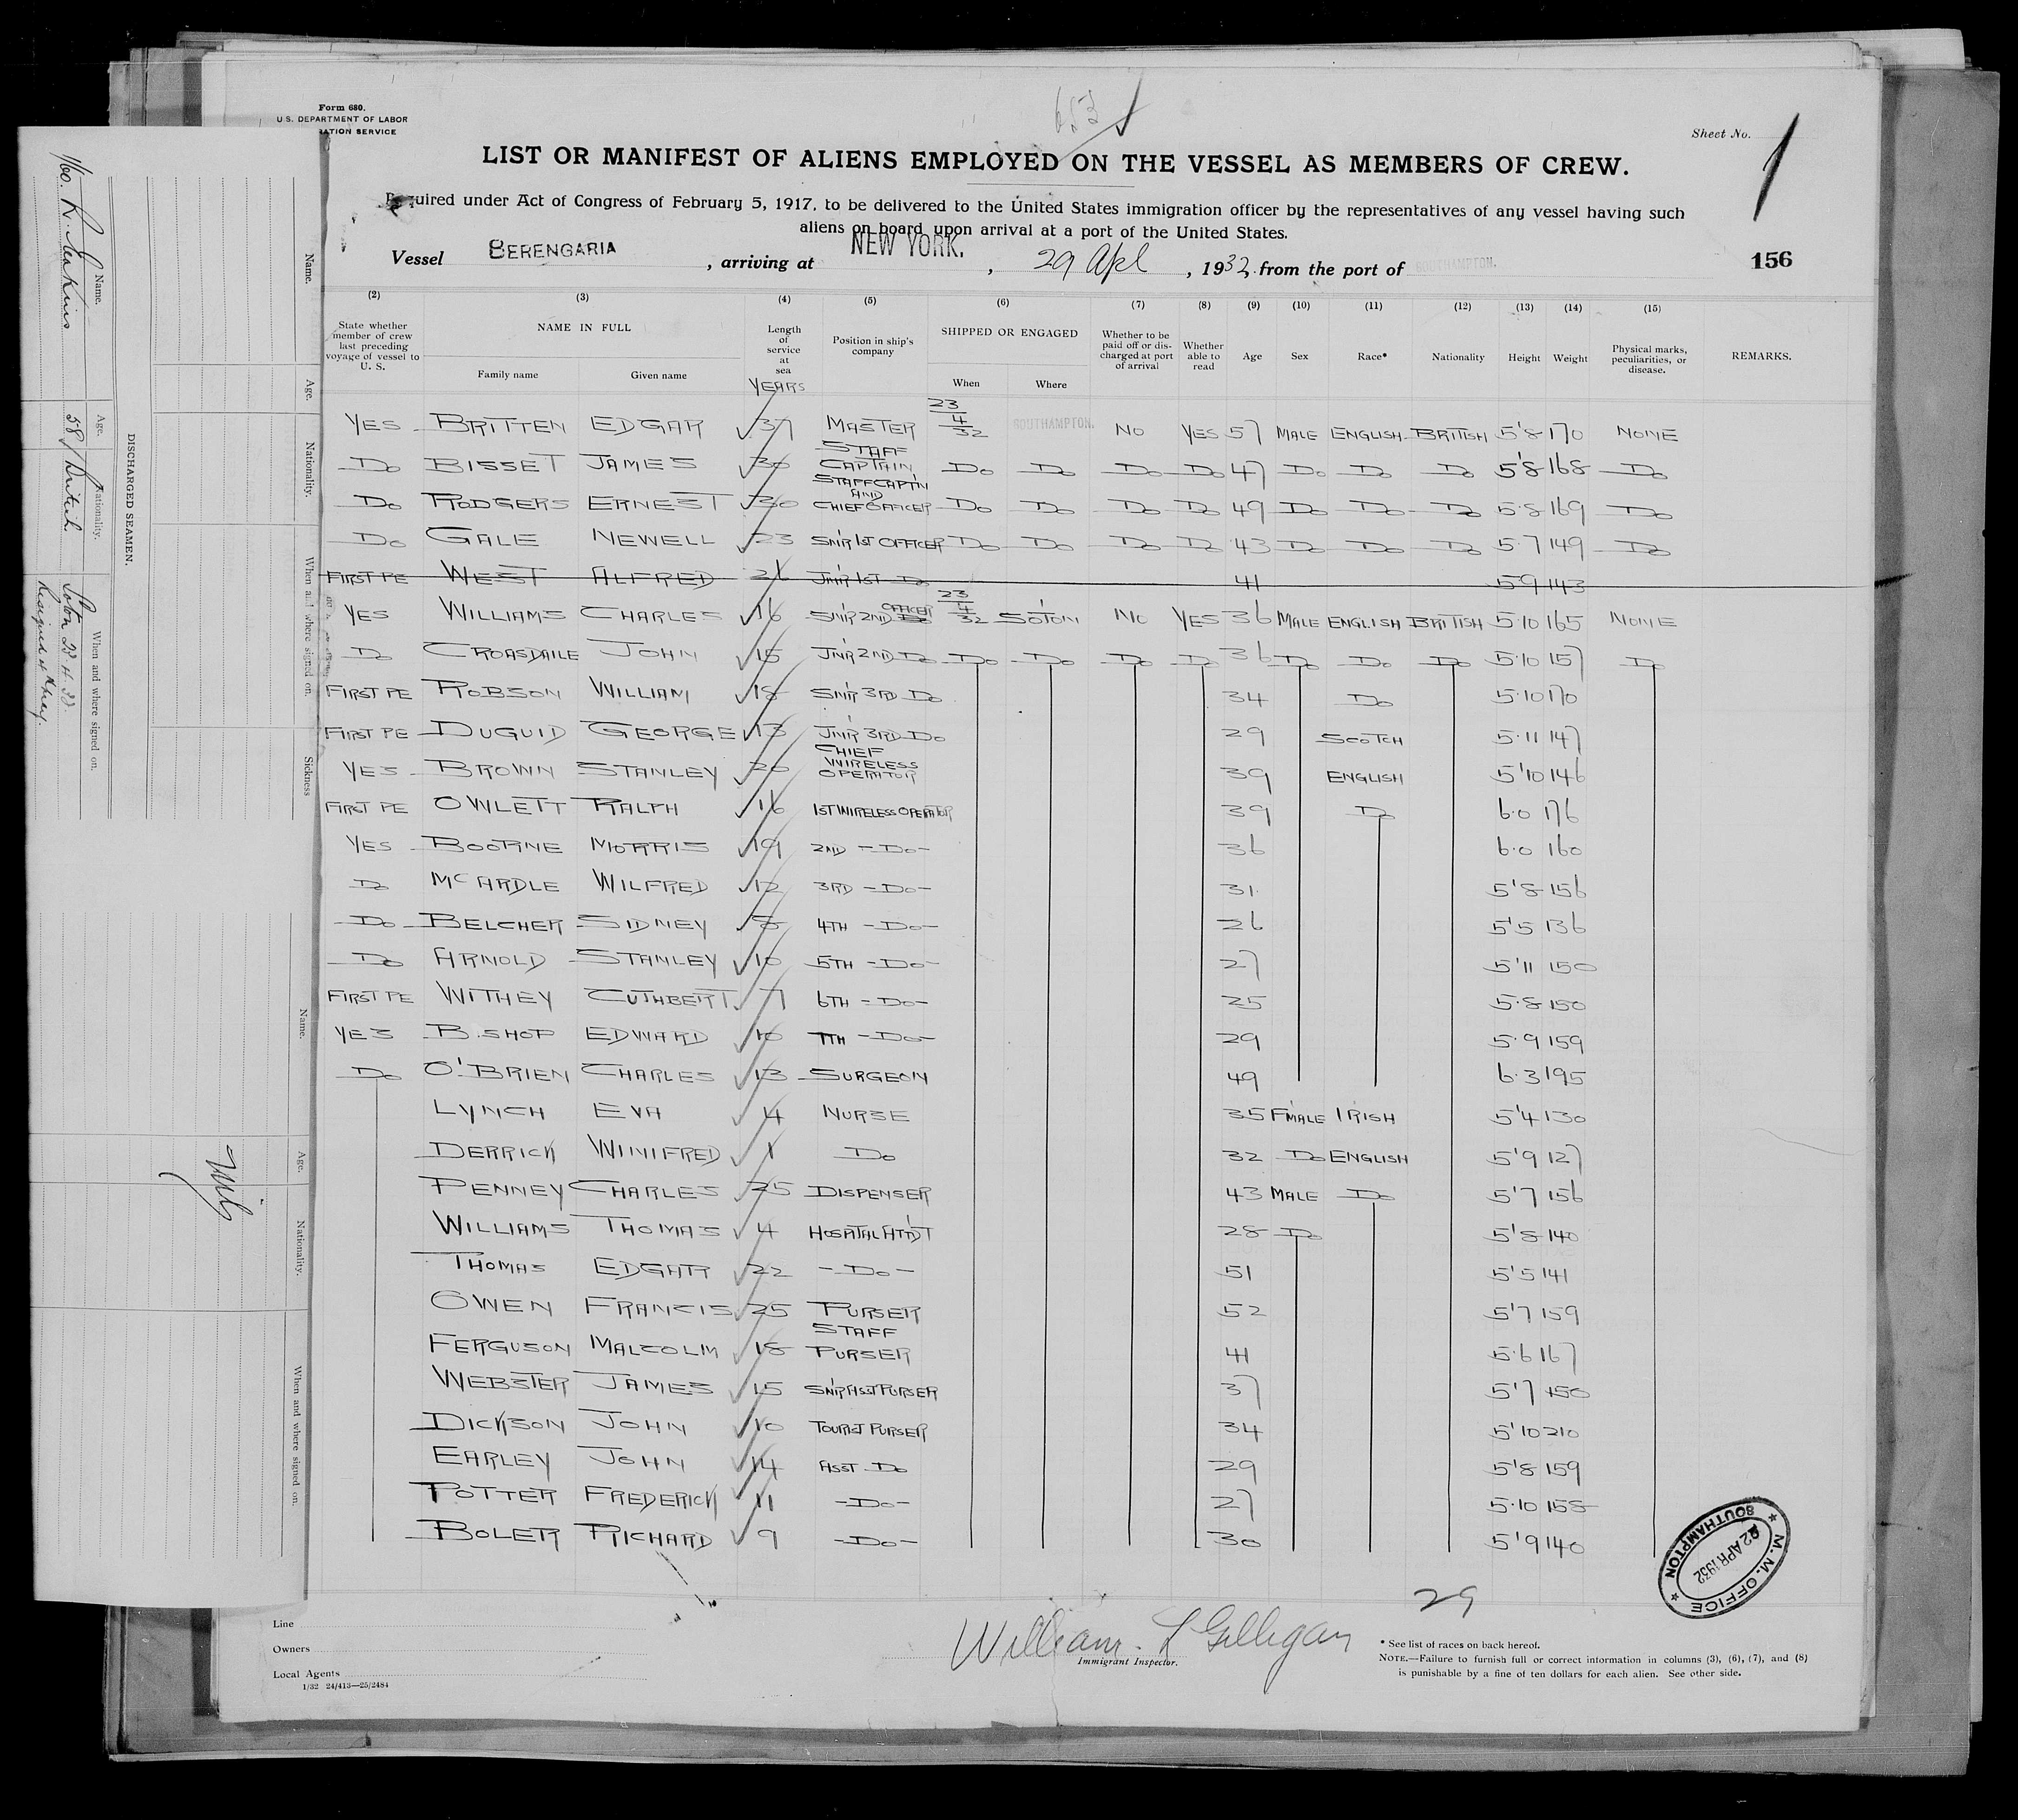 Form 680.
U.S. DEPARTMENT OF LABOR
RATION SERVICE
653
Sheet No. 1
LIST OR MANIFEST OF ALIENS EMPLOYED ON THE VESSEL AS MEMBERS OF CREW.
Required under Act of Congress of February 5, 1917, to be delivered to the United States immigration officer by the representatives of any vessel having such
aliens on board upon arrival at a port of the United States.
Vessel BERENGARIA, arriving at NEW YORK., 29 Apl, 1932, from the port of SOUTHAMPTON.
156
(2) (3) (4) (5) (6) (7) (8) (9) (10) (11) (12) (13) (14) (15)
State whether member of crew last preceding voyage of vessel to U. S. NAME IN FULL Family name Given name Length of service at sea YEARS Position in ship's company SHIPPED OR ENGAGED When Where Whether to be paid off or discharged at port of arrival Whether able to read Age Sex Race* Nationality Height Weight Physical marks, peculiarities, or disease. REMARKS.
YES BRITTEN EDGAR 37 MASTER 23/4/32 SOUTHAMPTON. NO YES 57 MALE ENGLISH BRITISH 5'8 170 NONE
Do BISSET JAMES 30 STAFF CAPTAIN Do Do Do Do 47 Do Do Do 5'8 168 Do
Do RODGERS ERNEST 30 STAFF CAPT'N AND CHIEF OFFICER Do Do Do Do 49 Do Do Do 5.8 169 Do
Do GALE NEWELL 23 SN'R 1ST OFFICER Do Do Do Do 43 Do Do Do 5.7 149 Do
FIRST PE WEST ALFRED 26 JN'R 1ST Do 41 5.9 143
YES WILLIAMS CHARLES 16 SN'R 2ND OFFICER 23/4/32 SOTON NO YES 36 MALE ENGLISH BRITISH 5.10 165 NONE
Do CROASDAILE JOHN 15 JN'R 2ND Do Do Do Do Do 36 Do Do Do 5.10 157 Do
FIRST PE ROBSON WILLIAM 18 SN'R 3RD Do 34 Do 5.10 170
FIRST PE DUGUID GEORGE 13 JN'R 3RD Do 29 SCOTCH 5.11 147
YES BROWN STANLEY 20 CHIEF WIRELESS OPERATOR 39 ENGLISH 5'10 146
FIRST PE OWLETT RALPH 16 1ST WIRELESS OPERATOR 39 Do 6.0 176
YES BOORNE MORRIS 19 2ND -Do- 36 6.0 160
Do McARDLE WILFRED 12 3RD -Do- 31 5'8 156
Do BELCHER SIDNEY 8 4TH -Do- 26 5'5 136
Do ARNOLD STANLEY 10 5TH -Do- 27 5'11 150
FIRST PE WITHEY CUTHBERT 7 6TH -Do- 25 5.8 150
YES BISHOP EDWARD 10 7TH -Do- 29 5.9 159
Do O'BRIEN CHARLES 13 SURGEON 49 6.3 195
LYNCH EVA 4 NURSE 35 F'MALE IRISH 5'4 130
DERRICK WINIFRED 1 Do 32 Do ENGLISH 5'9 127
PENNEY CHARLES 25 DISPENSER 43 MALE Do 5'7 156
WILLIAMS THOMAS 4 HOSPITAL ATT'D'T 28 Do 5'8 140
THOMAS EDGAR 22 -Do- 51 5'5 141
OWEN FRANCIS 25 PURSER 52 5'7 159
FERGUSON MALCOLM 18 STAFF PURSER 41 5.6 167
WEBSTER JAMES 15 SN'R ASST PURSER 37 5'7 150
DICKSON JOHN 10 TOURIST PURSER 34 5'10 210
EARLEY JOHN 14 ASST Do 29 5'8 159
POTTER FREDERICK 11 -Do- 27 5.10 158
BOLER RICHARD 9 -Do- 30 5'9 140
29
M. M. OFFICE SOUTHAMPTON
22 APR 1932
Line
Owners
Local Agents
1/32 24/413—25/2484
William L Gilligan
Immigrant Inspector.
* See list of races on back hereof.
NOTE.—Failure to furnish full or correct information in columns (3), (6), (7), and (8)
is punishable by a fine of ten dollars for each alien. See other side.
DISCHARGED SEAMEN.
Name. Age. Nationality. When and where signed on.
R. Meakins 58 British Soton 23.4.32.
Name. Age. Nationality. When and where signed on. Sickness
Name. Age. Nationality. When and where signed on.